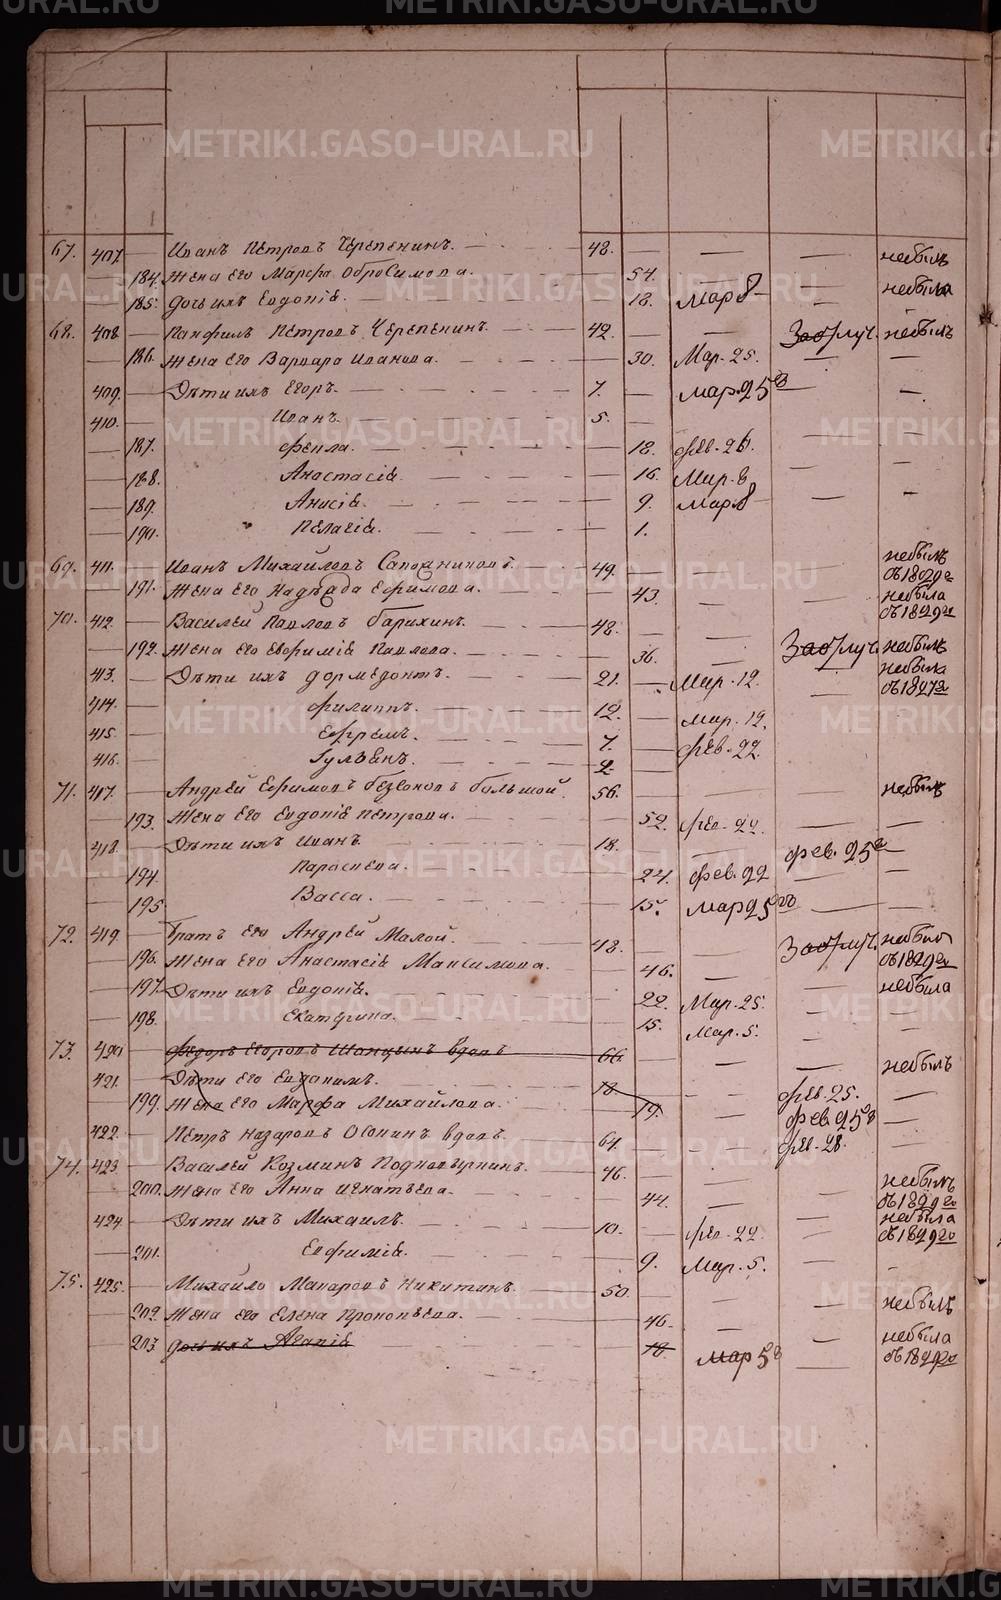 67. 407. Иванъ Петровъ Черепенинъ. 48. небылъ
184. Жена его Марфа Обросимова. 54.
185. дочь ихъ Евдокія. 18. Мар 8 небыла
68. 408. Панфилъ Петровъ Черепенинъ. 42. Забл̶уч. небылъ
186. Жена его Варвара Иванова. 30. Мар. 25.
409. Дѣти ихъ Егоръ. 7. мар 25
410. Иванъ. 5.
187. Фекла. 18. фев. 26.
188. Анастасія. 16. Мар. 8
189. Анисія. 9. Мар 8
190. Пелагія. 1.
69. 411. Иванъ Михайловъ Сапожниковъ. 49. небылъ
съ 1829 го
191. Жена его Надѣжда Ефимова. 43. небыла
съ 1829 го
70. 412. Василей Павловъ Барихинъ. 48.
192. Жена его Евфимія Павлова. 36. небылъ
413. Дѣти ихъ дормедонтъ. 21. Мар. 12. небыла
съ 1827 го
414. Филиппъ. 12. мар. 12.
415. Ефремъ. 7. фев. 22
416. Гульѣнъ. 2.
71. 417. Андрей Ефимовъ Безвоновъ большой. 56. небылъ
193. Жена его Евдокія Петрова. 52. фев. 22.
418. Дѣти ихъ Иванъ. 18. фев. 25
194. Параскева. 24. фев. 22
195. Васса. 15. мар 25
72. 419. Братъ его Андрей Малой. 48. небылъ
съ 1829 го
196. Жена его Анастасія Максимова. 46.
197. Дѣти ихъ Евдокія. 22. Мар. 25. небыла
198. Екатерина. 15. Мар. 5.
73. 420. Федоръ Егоровъ вдовъ 66. небылъ
421. Дѣти его Евдокимъ. 18. фев. 25.
199. Жена его Марфа Михайлова. 19. фев. 25
422. Петръ Назаровъ Осокинъ вдовъ. 64. фев. 28.
74. 423. Василей Козминъ 46. небылъ
съ 1829 го
200. Жена его Анна Игнатьева. 44. небыла
424. Дѣти ихъ Михаилъ. 10. фев. 22. съ 1829 го
201. Евфимія. 9. Мар. 5.
75. 425. Михайло Макаровъ Никитинъ. 50. небылъ
202. Жена его Елена Прокопьева. 46. небыла
203 дочь ихъ Агапія 18. мар 5 съ 1829 го
METRIKI.GASO-URAL.RU